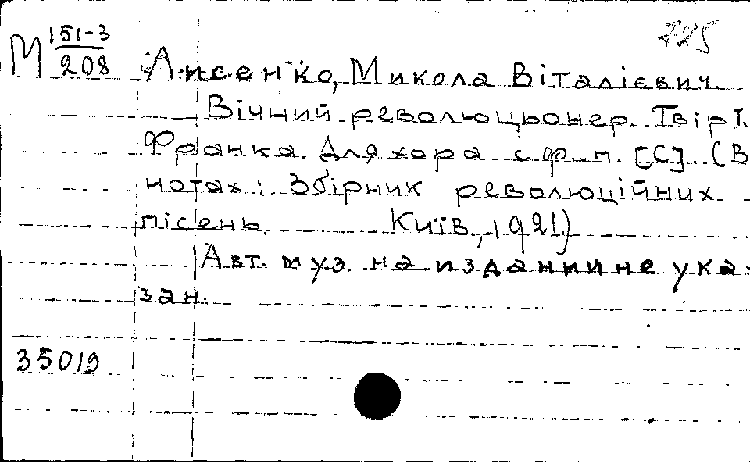 225
М 151-3
208
Лисенко, Микола Віталієвич.
Вічний революцьонер. Твір І.
Франка. Для хора с ф-п. [С] (В
нотах: Збірник революційних
пісень Київ, 1921)
Авт. муз. на издании не ука-
зан.
35019